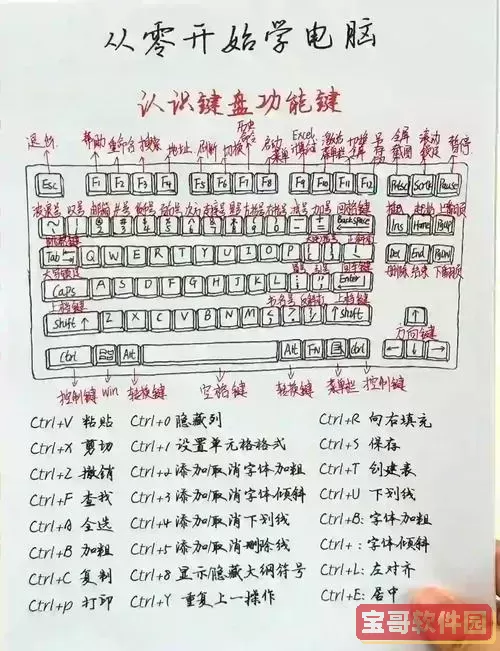 从零开始学电脑
认识键盘功能键
退出 帮助 重命名 搜索 地址 刷新 切换 启动菜单 Excel 激活菜单栏 切换全屏 全屏截图 滚动锁定 暂停
Esc F1 F2 F3 F4 F5 F6 F7 F8 F9 F10 F11 F12 PrtSc Scrlk Pause
波浪号 叹号 井号 减号 加号 回格键 上翻页
Backspace Ins Home PgUp
Tab Q W E R T Y U I O P Del End PgDn
删除 结束 下翻页
大写锁定 回车键
Caps A S D F G H J K L Enter
上档键 上档键
Shift ↑ Z X C V B N M ↑ Shift ↑
方向键
Ctrl Alt Alt FN Ctrl ← ↓ →
控制键 win 转换键 空格键 转换键 菜单栏 控制键
Ctrl+V 粘贴 Ctrl+0 隐藏列 Ctrl+R 向右填充
Ctrl+X 剪切 Ctrl+1 设置单元格格式 Ctrl+S 保存
Ctrl+Z 撤销 Ctrl+2 添加/取消字体加粗 Ctrl+T 创建表
Ctrl+F 查找 Ctrl+3 添加/取消字体倾斜 Ctrl+U 下划线
Ctrl+A 全选 Ctrl+4 添加/取消下划线 Ctrl+B: 字体加粗
Ctrl+B 加粗 Ctrl+5 添加/取消删除线 Ctrl+ : 字体倾斜
Ctrl+C 复制 Ctrl+8 显示隐藏大纲符号 Ctrl+L: 左对齐
Ctrl+p 打印 Ctrl+Y 重复上一操作 Ctrl+E: 居中
宝哥软件园